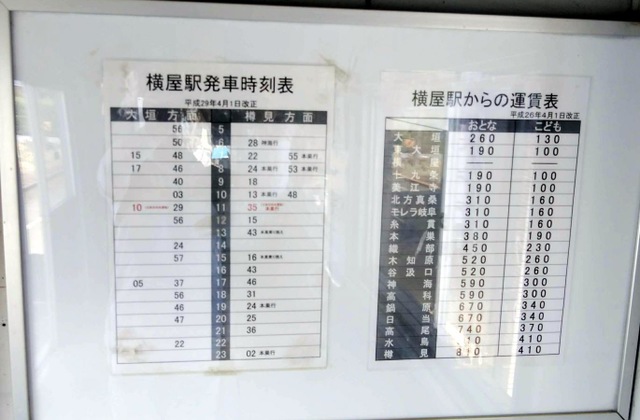 横屋駅発車時刻表
平成29年4月1日改正
大垣方面 樽見方面
56 5
50 6 28 神海行
15 48 22 55 本巣行
17 46 8 24 本巣行 53 本巣行
40 9 18
03 10 13 本巣行 48
10 29 11 35 本巣行
56 12 15
13 43
24 14
57 15 16
16 43
05 37 17 46
56 18 31
46 19 24 本巣行
47 20 25
21 36
22 22
23 02 本巣行
横屋駅からの運賃表
平成26年4月1日改正
おとな こども
大垣 260 130
東大垣 190 100
屋 — —
十九条 190 100
美江寺 190 100
北方真桑 310 160
モレラ岐阜 310 160
糸貫 310 160
本巣 380 190
織部 450 230
木知原 520 260
谷汲口 520 260
神海 590 300
高科 590 300
鍋原 670 340
日当 670 340
高尾 740 370
水鳥 410
樽見 810 410